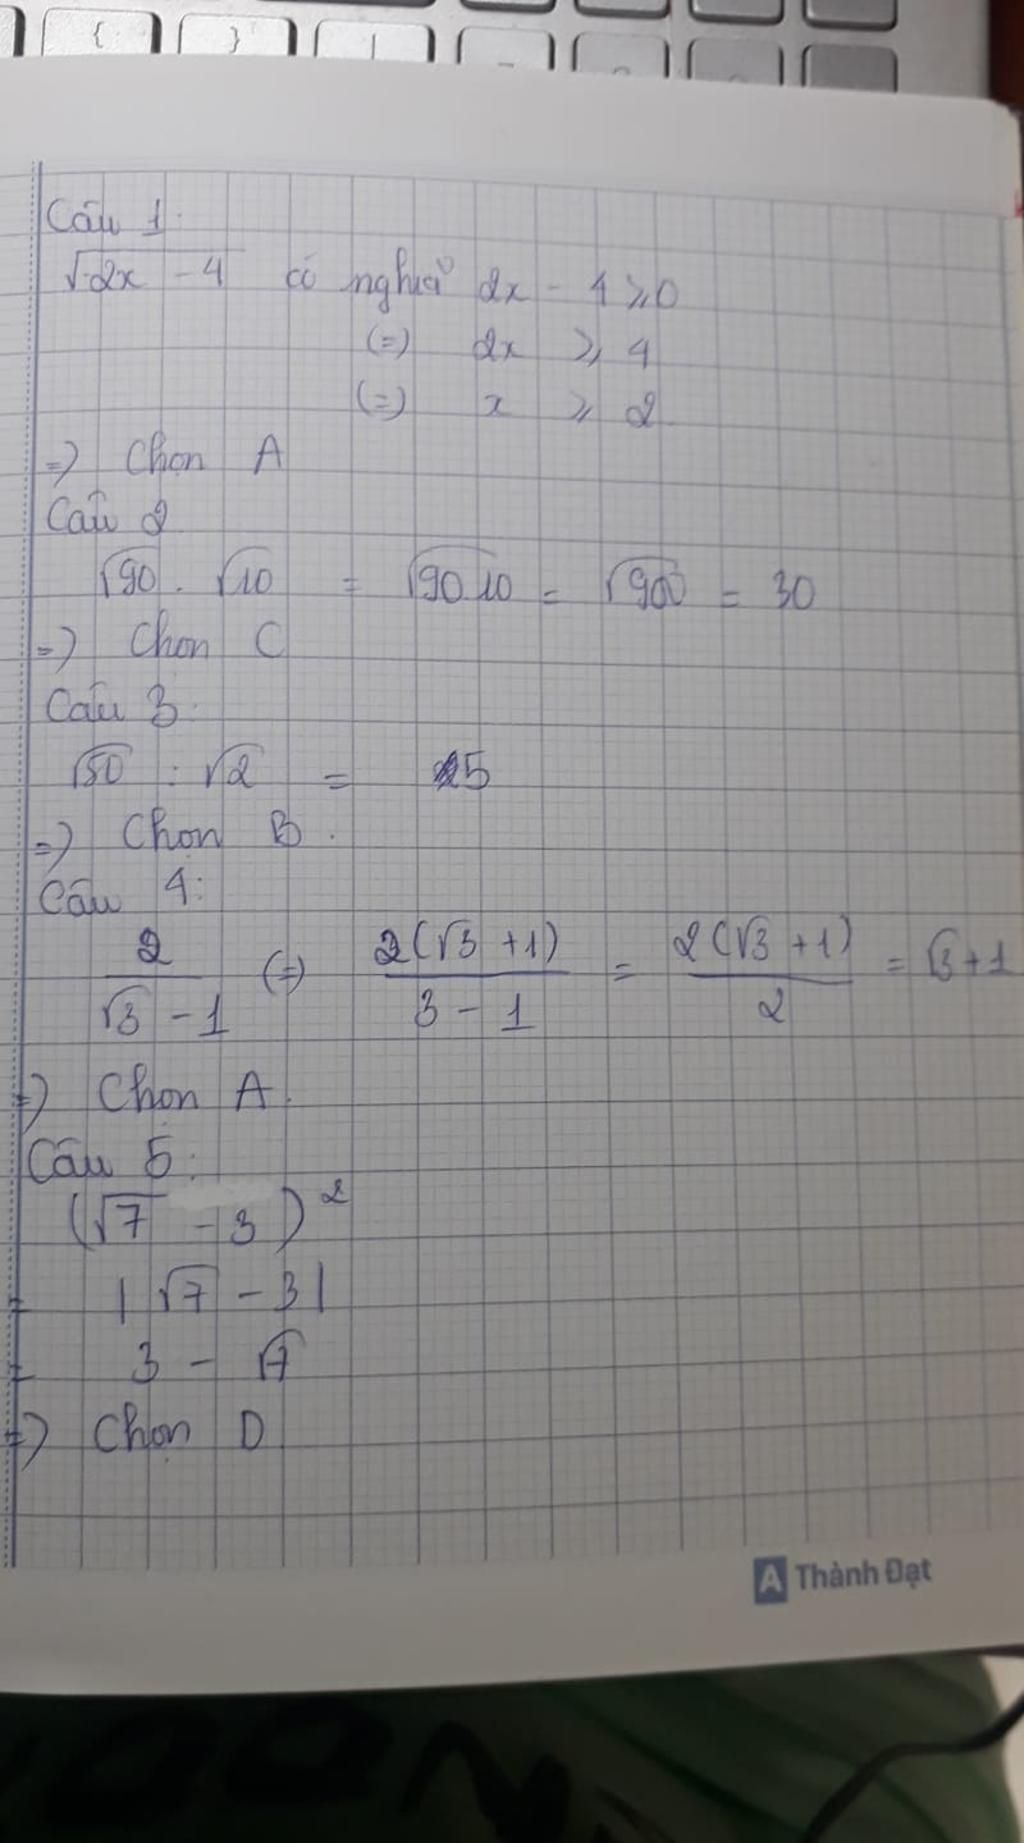 { } | -
Câu 1:
√2x - 4 có nghĩa 2x - 4 ⩾ 0
(=) 2x ⩾ 4
(=) x ⩾ 2
=) Chọn A
Câu 2
√90 . √10 = √90.10 = √900 = 30
=) Chọn C
Câu 3:
√50 : √2 = 5
=) Chọn B.
Câu 4:
2/(√3 - 1) (=) 2(√3 + 1)/(3 - 1) = 2(√3 + 1)/2 = √3 + 1
=) Chọn A.
Câu 5:
(√7 - 3)²
= |√7 - 3|
= 3 - √7
=) Chọn D
A Thành Đạt